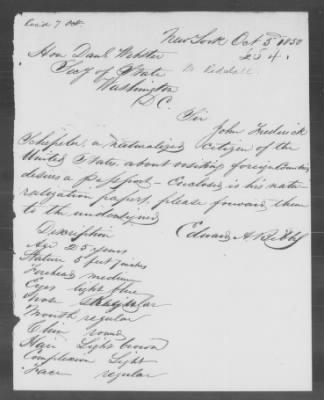 Recd 7 Oct
New York Oct 5th 1850
Hon Danl Webster
254.
Secy of State
Washington
D.C.
Sir
John Frederick
a naturalized citizen of the
United States, about visiting foreign Countries
desires a passport - Enclosed is his natu-
ralization papers, please forward them
to the undersigned
Edward A.
Description
Age 25 years
Stature 5 feet 7 inches
Forehead medium
Eyes light blue
Nose regular
Mouth regular
Chin round
Hair Light brown
Complexion Light
Face regular